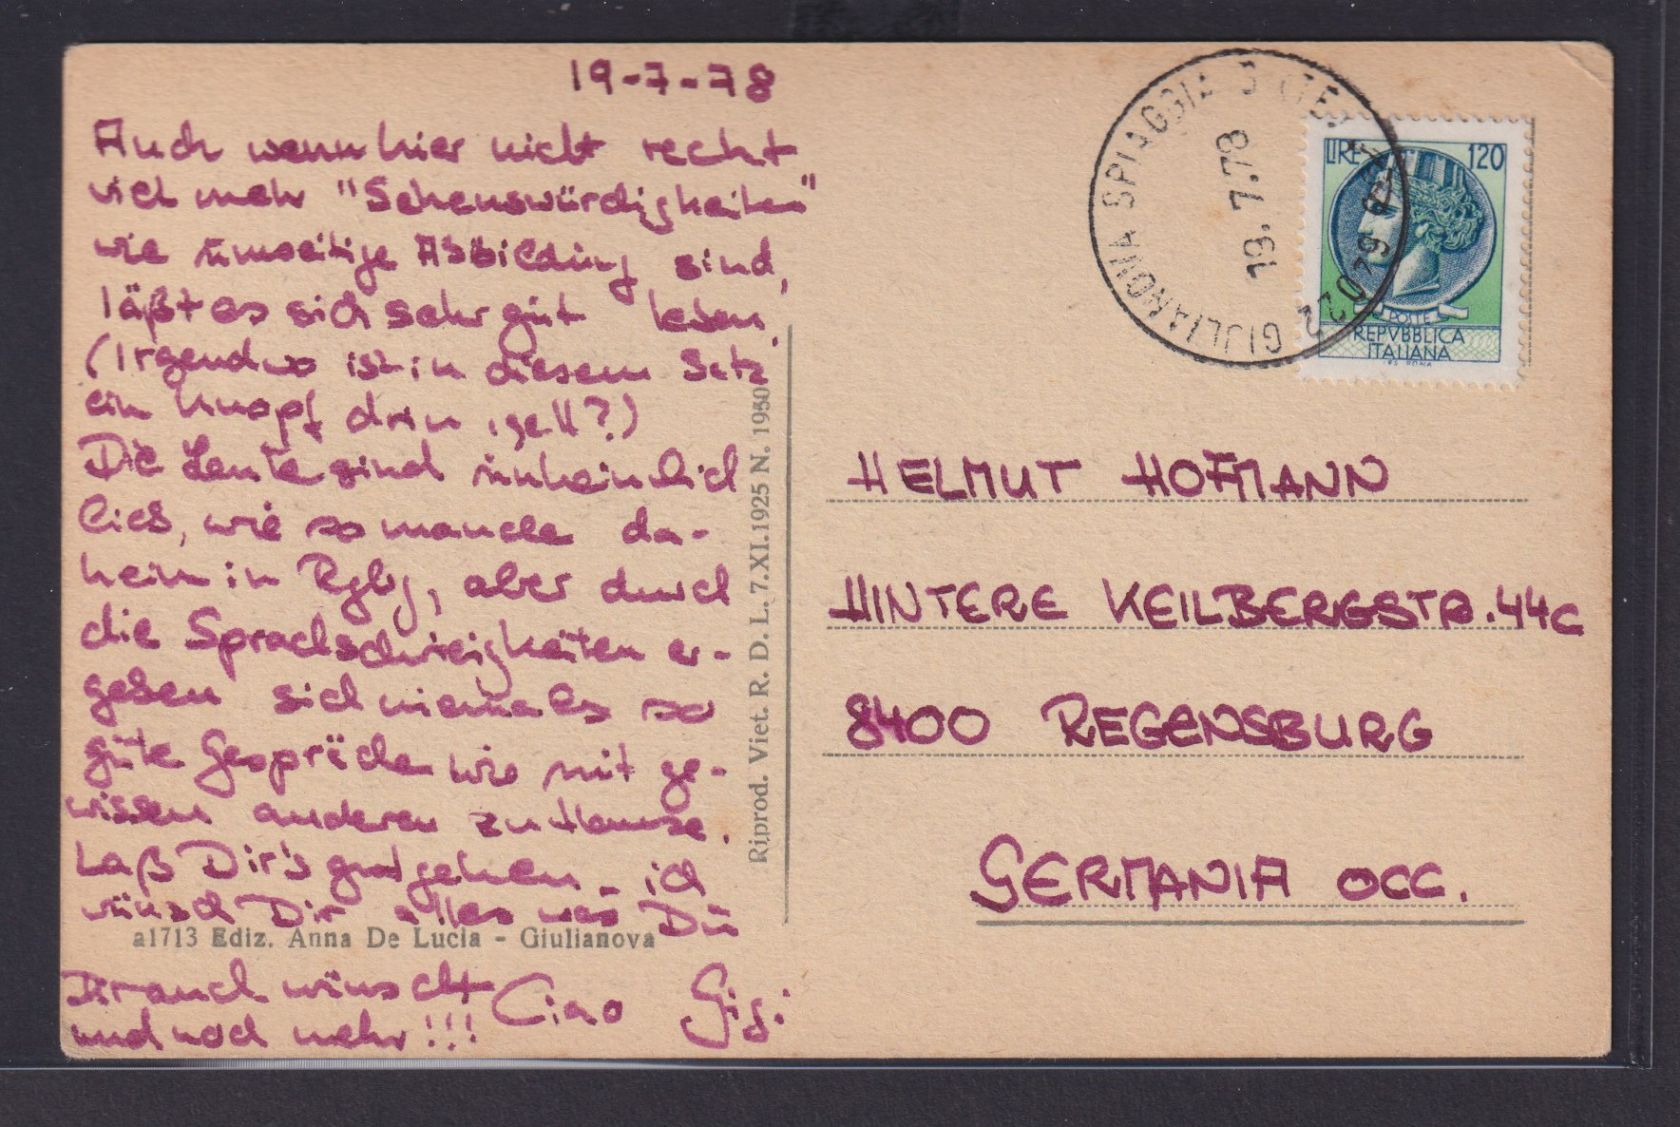 19-7-78
Auch wenn hier nicht recht
viel mehr "Sehenswürdigkeiten"
wie umseitige Abbildung sind,
läßt es sich sehr gut leben,
(Irgendwo ist in diesem Satz
ein Knopf drin, gell?)
Die Leute sind unheimlich
lieb, wie so manche da-
heim in Rgbg, aber durch
die Sprachschwierigkeiten er-
geben sich niemals so
gute Gespräche wie mit ge-
wissen anderen zu Hause.
Laß Dir's gut gehen - ich
wünsch Dir alles was Du
Dir auch wünscht
und noch mehr!!!
Ciao Gigi
a1713 Ediz. Anna De Lucia - Giulianova
Riprod. Viet. R. D. L. 7.XI.1925 N. 1950
GIULIANOVA SPIAGGIA
19.7.78
LIRE 120
POSTE
REPVBBLICA
ITALIANA
HELMUT HOFMANN
HINTERE KEILBERGSTR. 44c
8400 REGENSBURG
GERMANIA OCC.